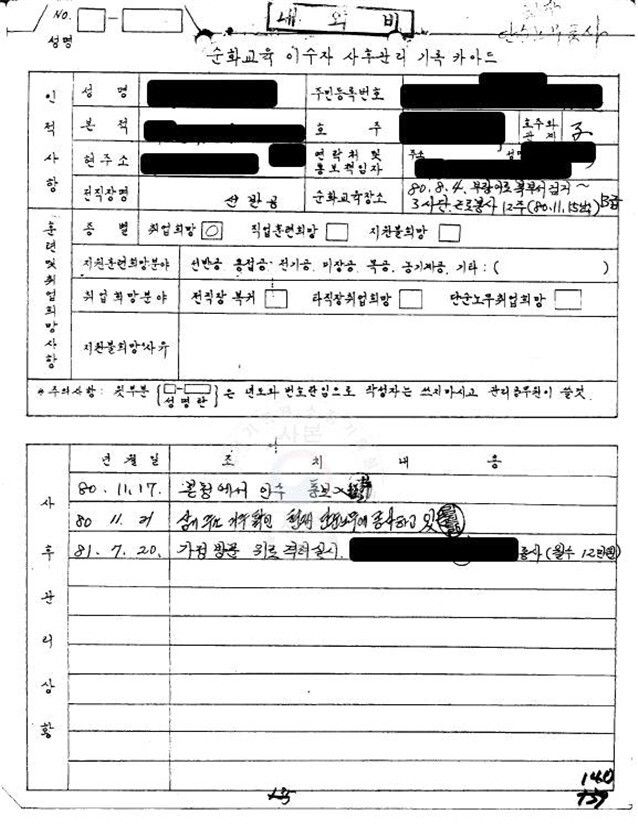 NO.
대외비
성명
단순노무종사
순화교육 이수자 사후관리 기록카아드
인적사항
성명
주민등록번호
본적
호주
호주와 관계 子
현주소
연락처 및 통보책임자
주소
성명
전직장명
선반공
순화교육장소
80.8.4. 북부서 검거~
3사단 근로봉사 12주(80.11.15 B급
훈련및취업희망사항
종별 취업희망 직업훈련희망 지원불희망
지원훈련희망분야
선반공 용접공 전기공. 미장공. 목공. 농기계공. 기타:( )
취업희망분야
전직장 복귀 타직장취업희망 단순노무취업희망
지원불희망사유
*주의사항: 윗부분 { 성명란 } 은 년도와 번호란임으로 작성자는 쓰지마시고 관리공무원이 쓸것.
사본
사후관리상황
년월일 조치내용
80.11.17. 본청에서 인수 통보
80 11. 21 거주 확인 현재 단순노무에 종사하고 있
81.7.20. 가정방문 위로격려실시. 종사(월수 12만원)
140
139